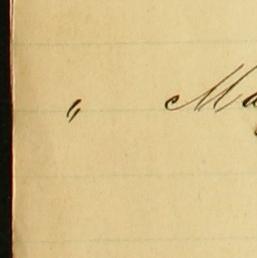 " Ma